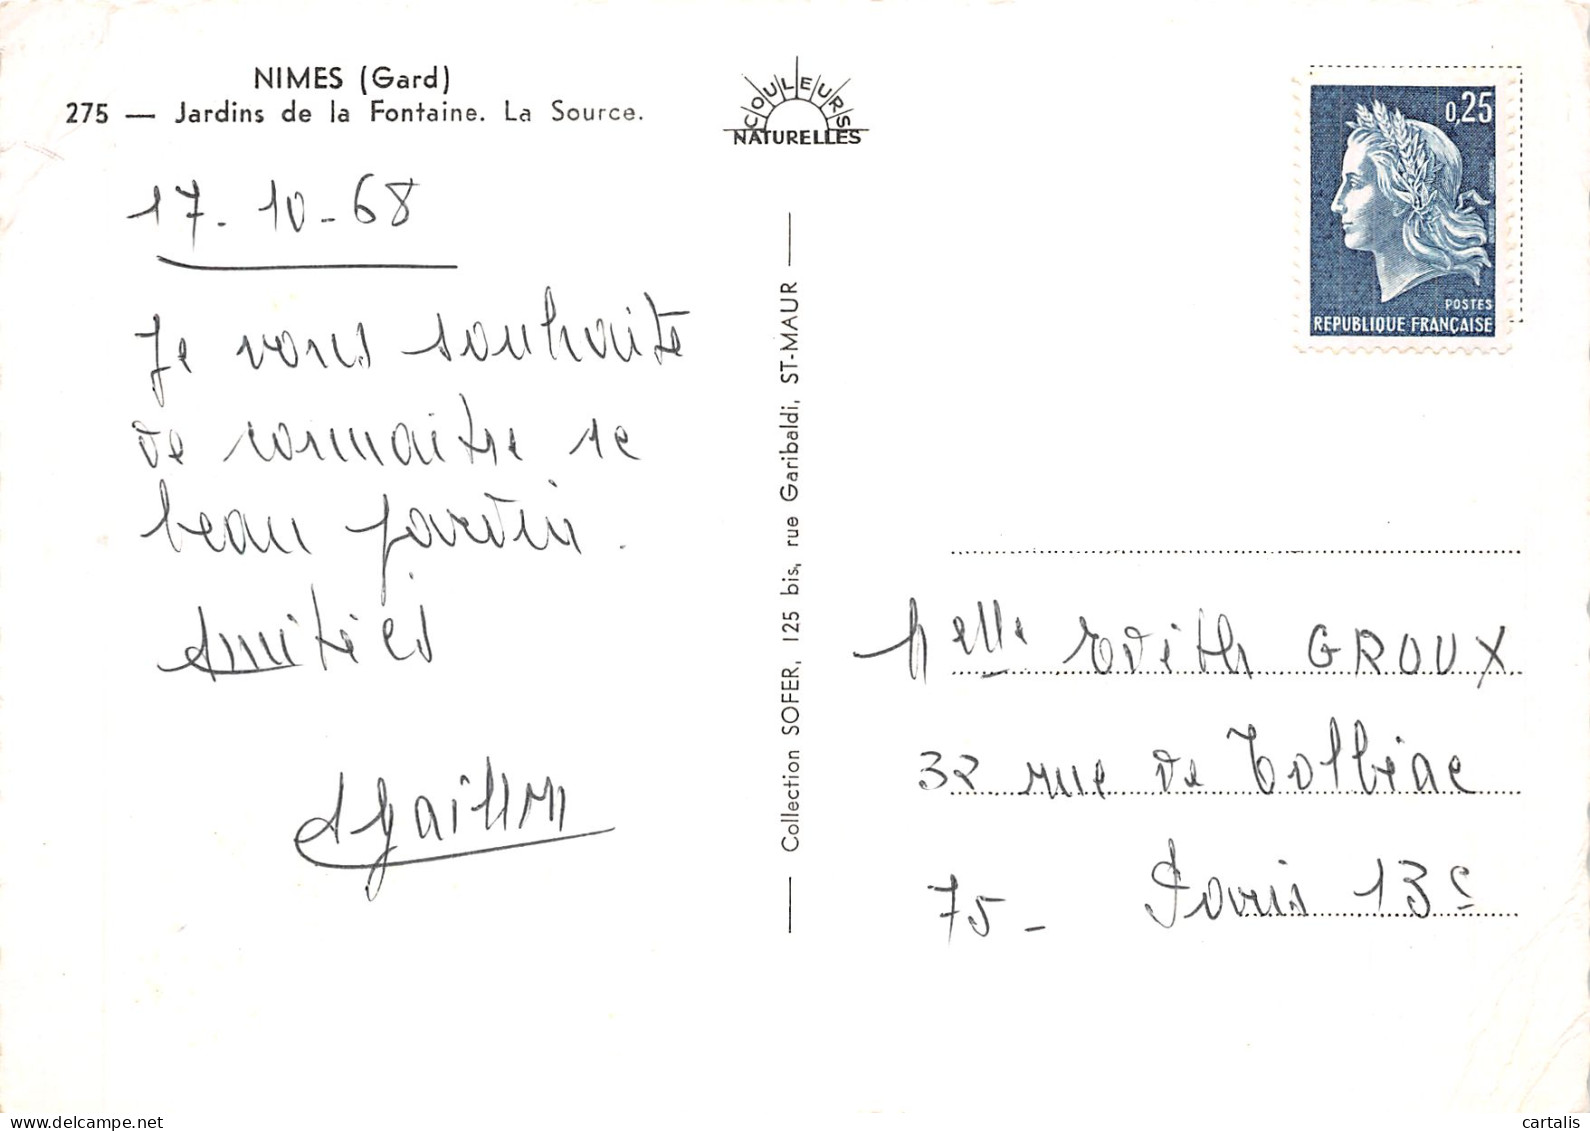 NIMES (Gard)
275 — Jardins de la Fontaine. La Source.
COULEURS
NATURELLES
17-10-68
Je vous souhaite
de connaître ce
beau jardin.
Amitiés
Collection SOFER, 125 bis, rue Garibaldi, ST-MAUR
0,25
POSTES
REPUBLIQUE FRANÇAISE
Melle Edith GROUX
32 rue de Tolbiac
75- Paris 13e
delcampe.net
cartalis